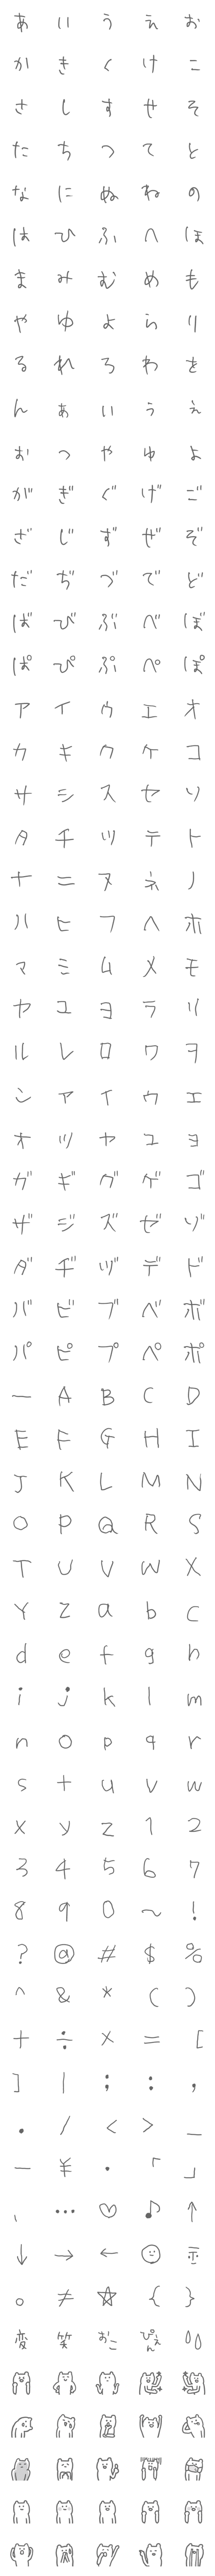 あ い う え お
か き く け こ
さ し す せ そ
た ち つ て と
な に ぬ ね の
は ひ ふ へ ほ
ま み む め も
や ゆ よ ら り
る れ ろ わ を
ん ぁ ぃ ぅ ぇ
ぉ っ ゃ ゅ ょ
が ぎ ぐ げ ご
ざ じ ず ぜ ぞ
だ ぢ づ で ど
ば び ぶ べ ぼ
ぱ ぴ ぷ ぺ ぽ
ア イ ウ エ オ
カ キ ク ケ コ
サ シ ス セ ソ
タ チ ツ テ ト
ナ ニ ヌ ネ ノ
ハ ヒ フ ヘ ホ
マ ミ ム メ モ
ヤ ユ ヨ ラ リ
ル レ ロ ワ ヲ
ン ァ ィ ゥ ェ
ォ ッ ャ ュ ョ
ガ ギ グ ゲ ゴ
ザ ジ ズ ゼ ゾ
ダ ヂ ヅ デ ド
バ ビ ブ ベ ボ
パ ピ プ ペ ポ
ー A B C D
E F G H I
J K L M N
O P Q R S
T U V W X
Y Z a b c
d e f g h
i j k l m
n o p q r
s t u v w
x y z 1 2
3 4 5 6 7
8 9 0 〜 !
? @ # $ %
^ & * ( )
+ ÷ × = [
] | ; : ,
. / < > _
− ¥ ・ 「 」
、 … ♡ ♪ ↑
↓ → ←
。 ≠ ☆ { }
変 笑 おこ ぴえん